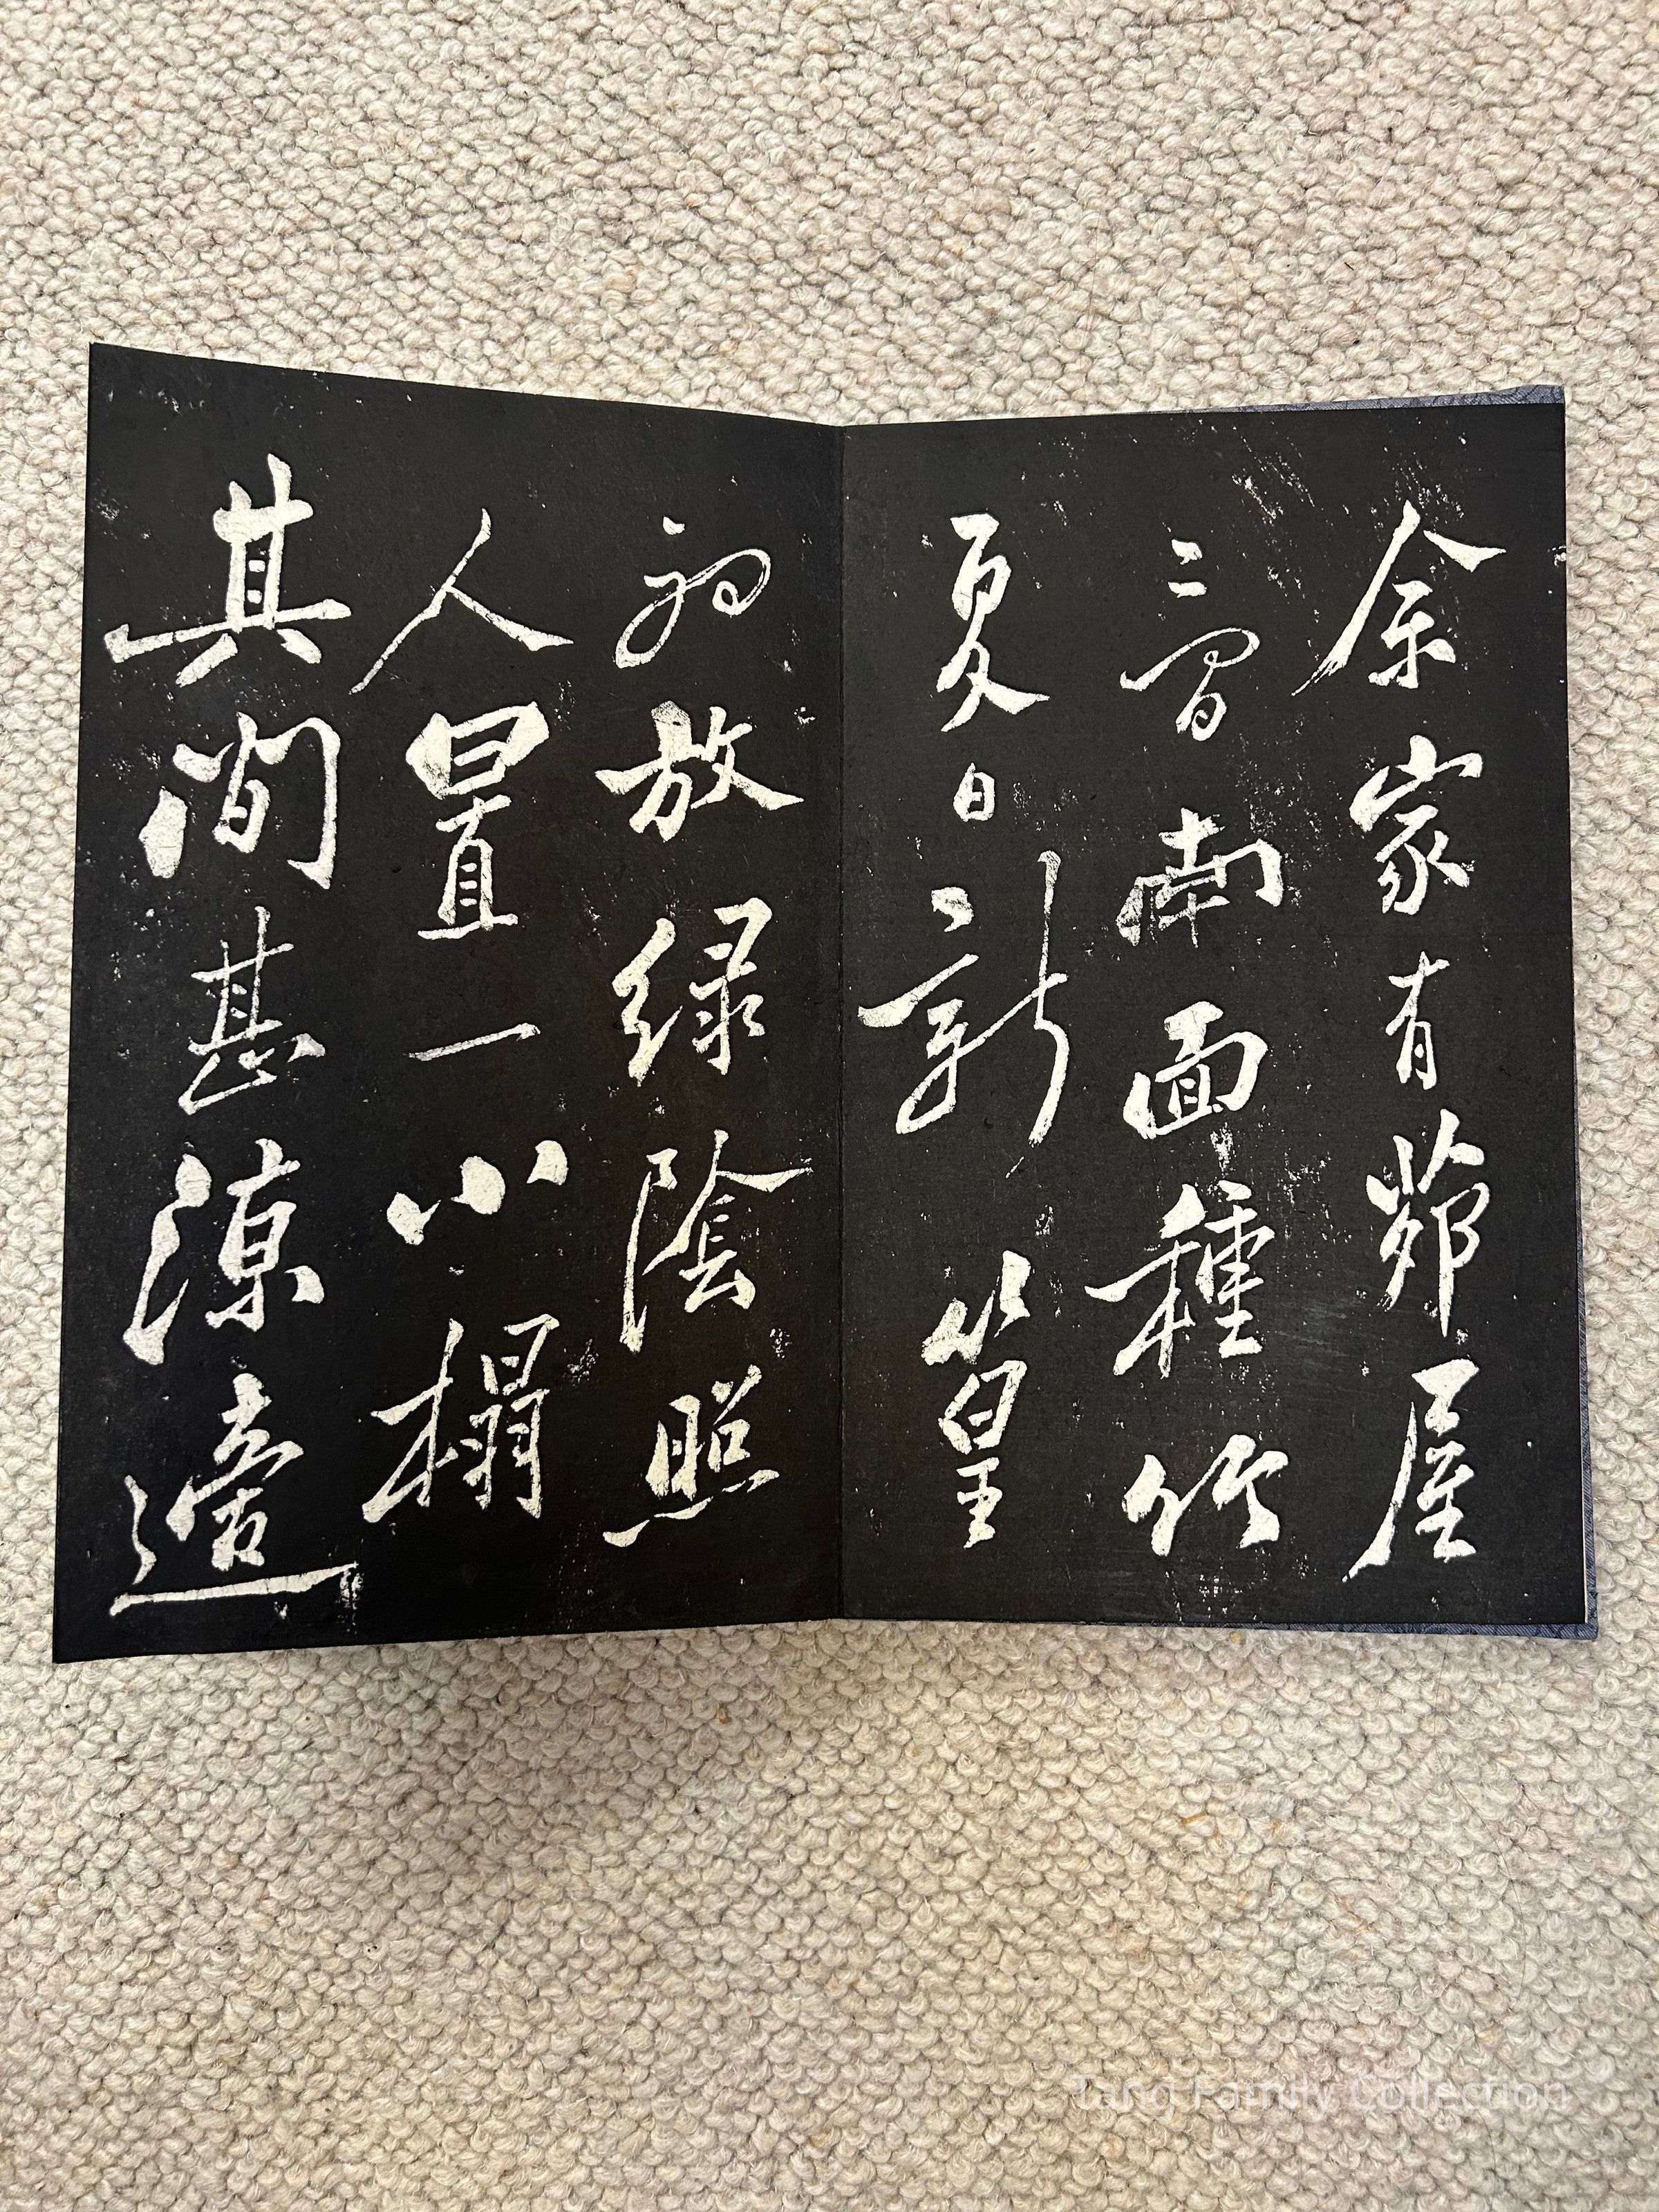 余家有茆屋
二間南面種竹
夏日新篁
初放綠陰照
人置一小榻
其間甚涼適
Tang Family Collection